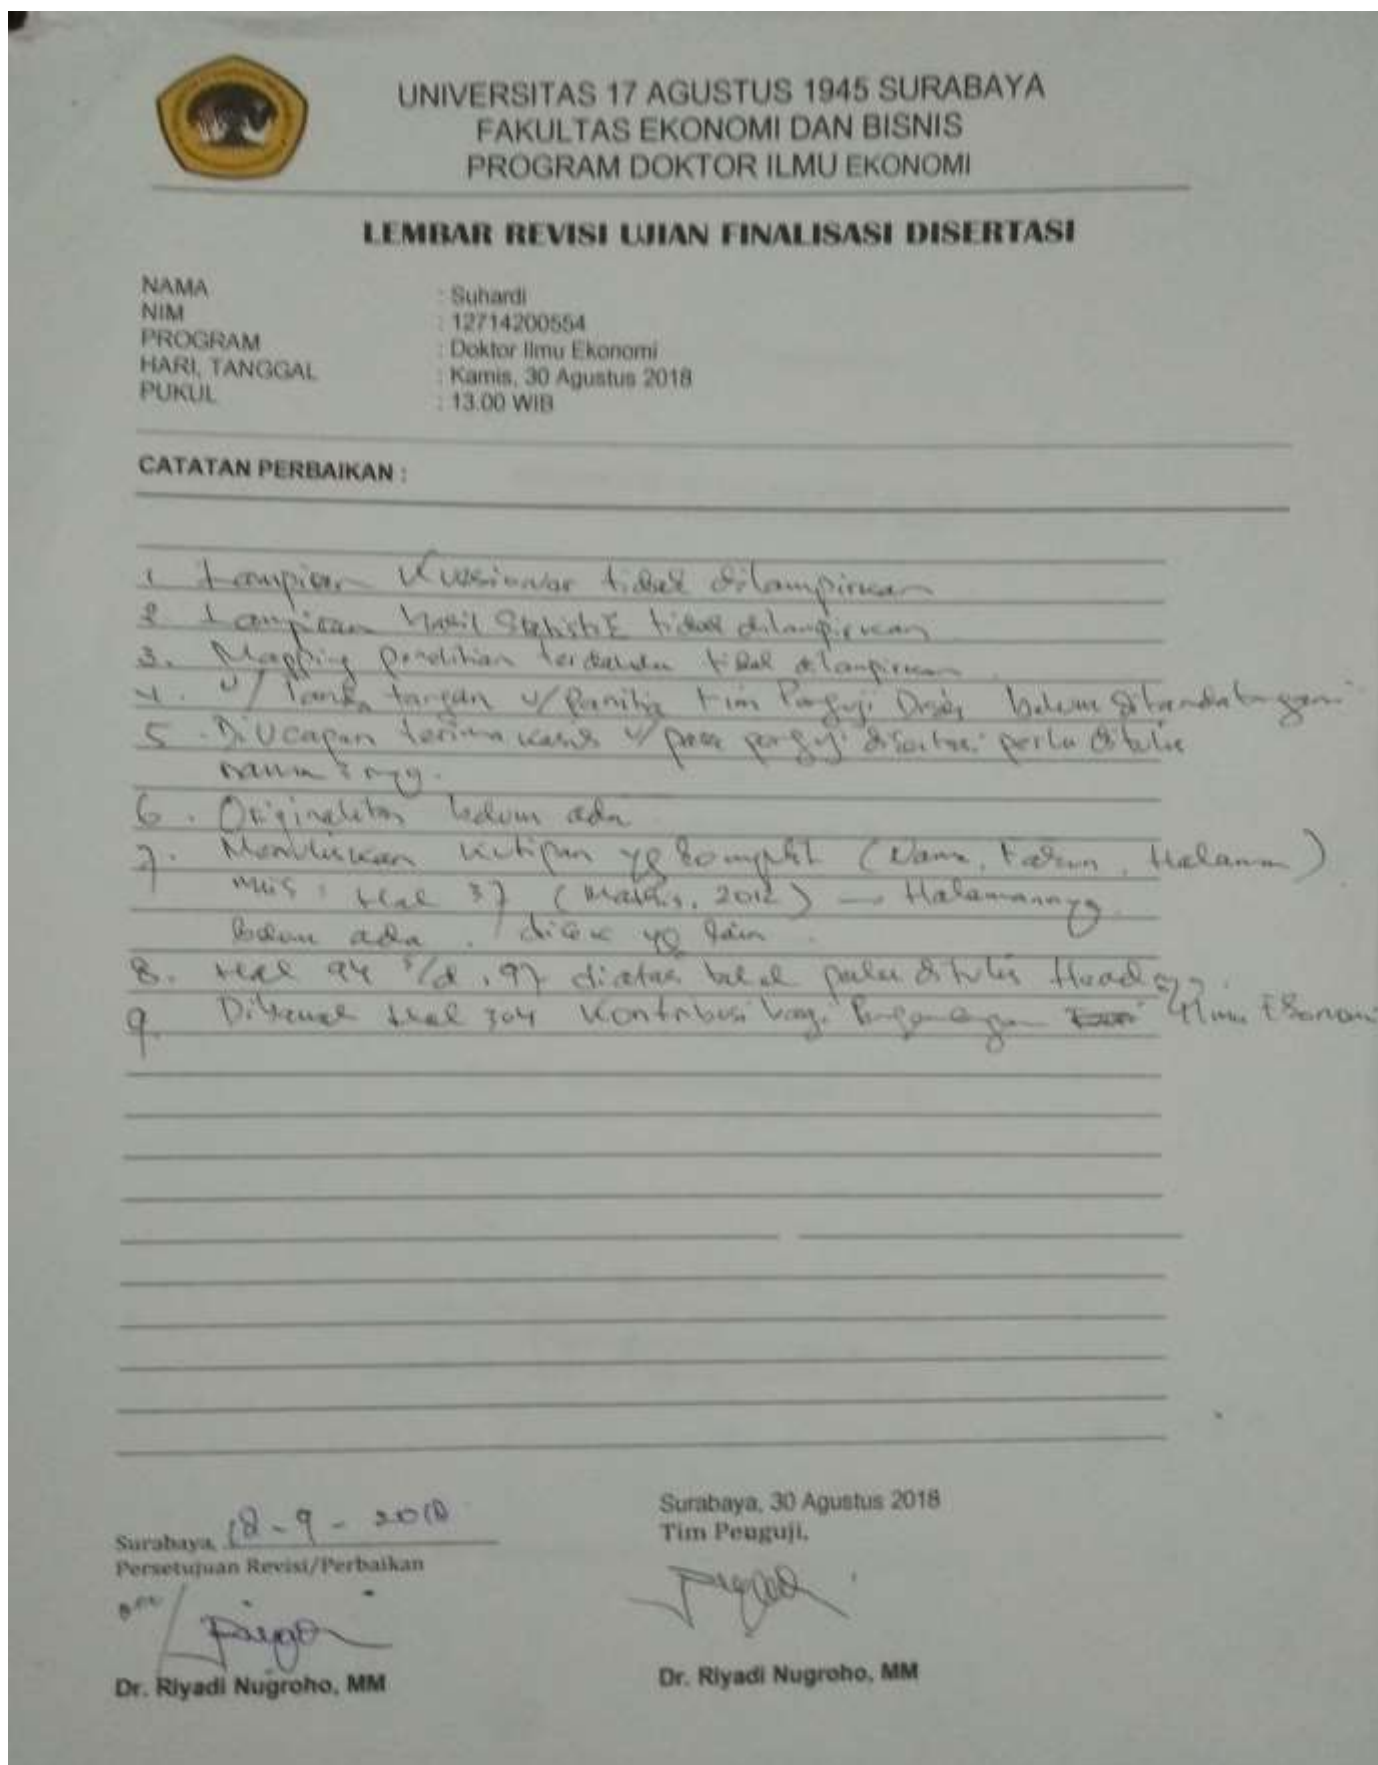 UNIVERSITAS 17 AGUSTUS 1945 SURABAYA
FAKULTAS EKONOMI DAN BISNIS
PROGRAM DOKTOR ILMU EKONOMI
LEMBAR REVISI UJIAN FINALISASI DISERTASI
NAMA : Suhardi
NIM : 12714200554
PROGRAM : Doktor Ilmu Ekonomi
HARI, TANGGAL : Kamis, 30 Agustus 2018
PUKUL : 13.00 WIB
CATATAN PERBAIKAN :
1 Lampiran Kuesioner tidak dilampirkan
2 Lampiran Hasil Statistik tidak dilampirkan
3. Mapping penelitian terdahulu tidak dilampirkan
4. U/ tanda tangan u/ panitia tim Penguji belum ditandatangani
5. Di Ucapan terima kasih u/ para penguji disertasi perlu ditulis
6. Originalitas belum ada
7. Menuliskan kutipan yg komplit (Nama, Tahun, Halaman)
Mis : Hal 37 (2012) — Halamannya
belum ada. dicek yg lain.
8. Hal 94 s/d. 97 diatas perlu ditulis Head
9. Hal 304 Kontribusi bagi Ilmu Ekonomi
Surabaya, 18-9-2018
Persetujuan Revisi/Perbaikan
Dr. Riyadi Nugroho, MM
Surabaya, 30 Agustus 2018
Tim Penguji,
Dr. Riyadi Nugroho, MM